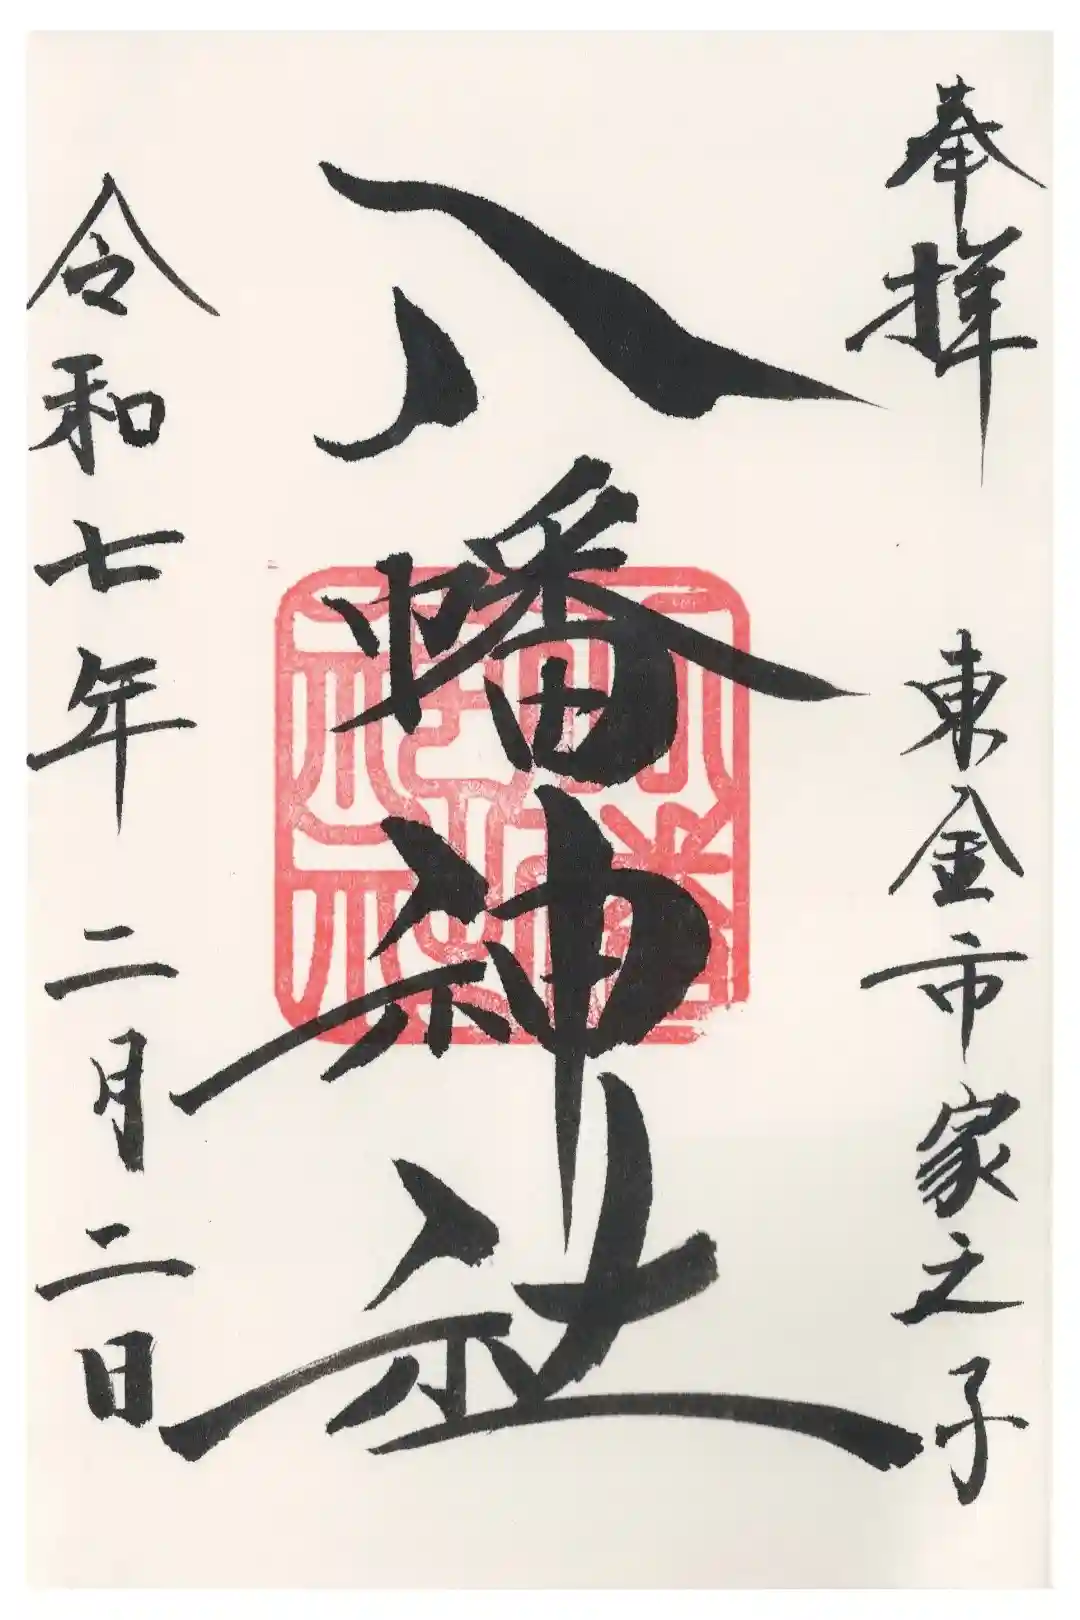 奉拝 東金市家之子
八幡神社
令和七年 二月二日